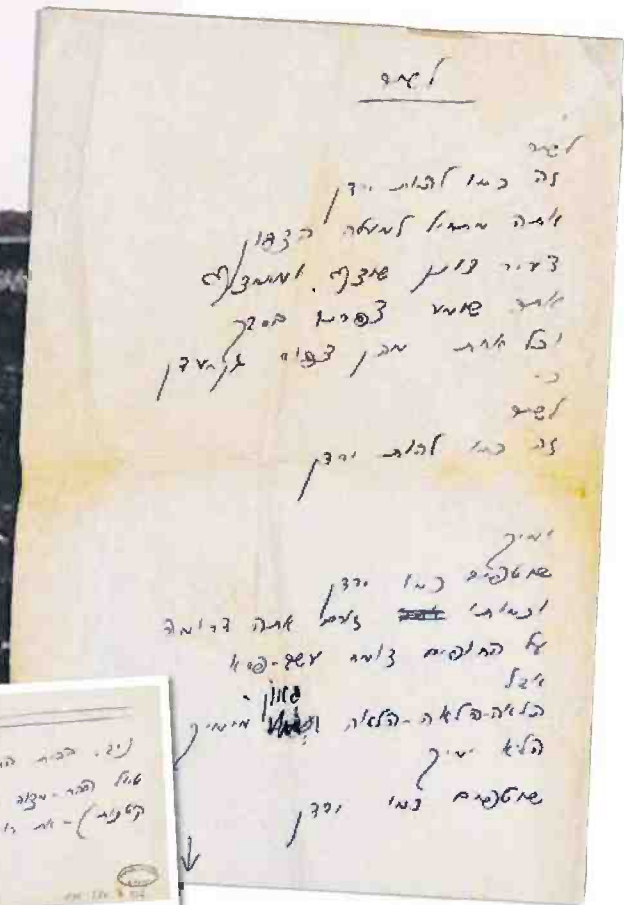 לשיר
לשיר
זה כמו להיות ירדן
אתה מתחיל למעלה בצפון
צעיר צונן שוצף
אתה שומע צפרים בסבך
וכל אחת מהן צפור גן-עדן
כי
לשיר
זה כמו להיות ירדן
ימיך
שוטפים כמו ירדן
וכמותו זורם אתה דרומה
על החופים צומח עשב-פרא
אבל
הלאה-הלאה-הלאה מימיך
הלא ימיך
שוטפים כמו ירדן
הבית